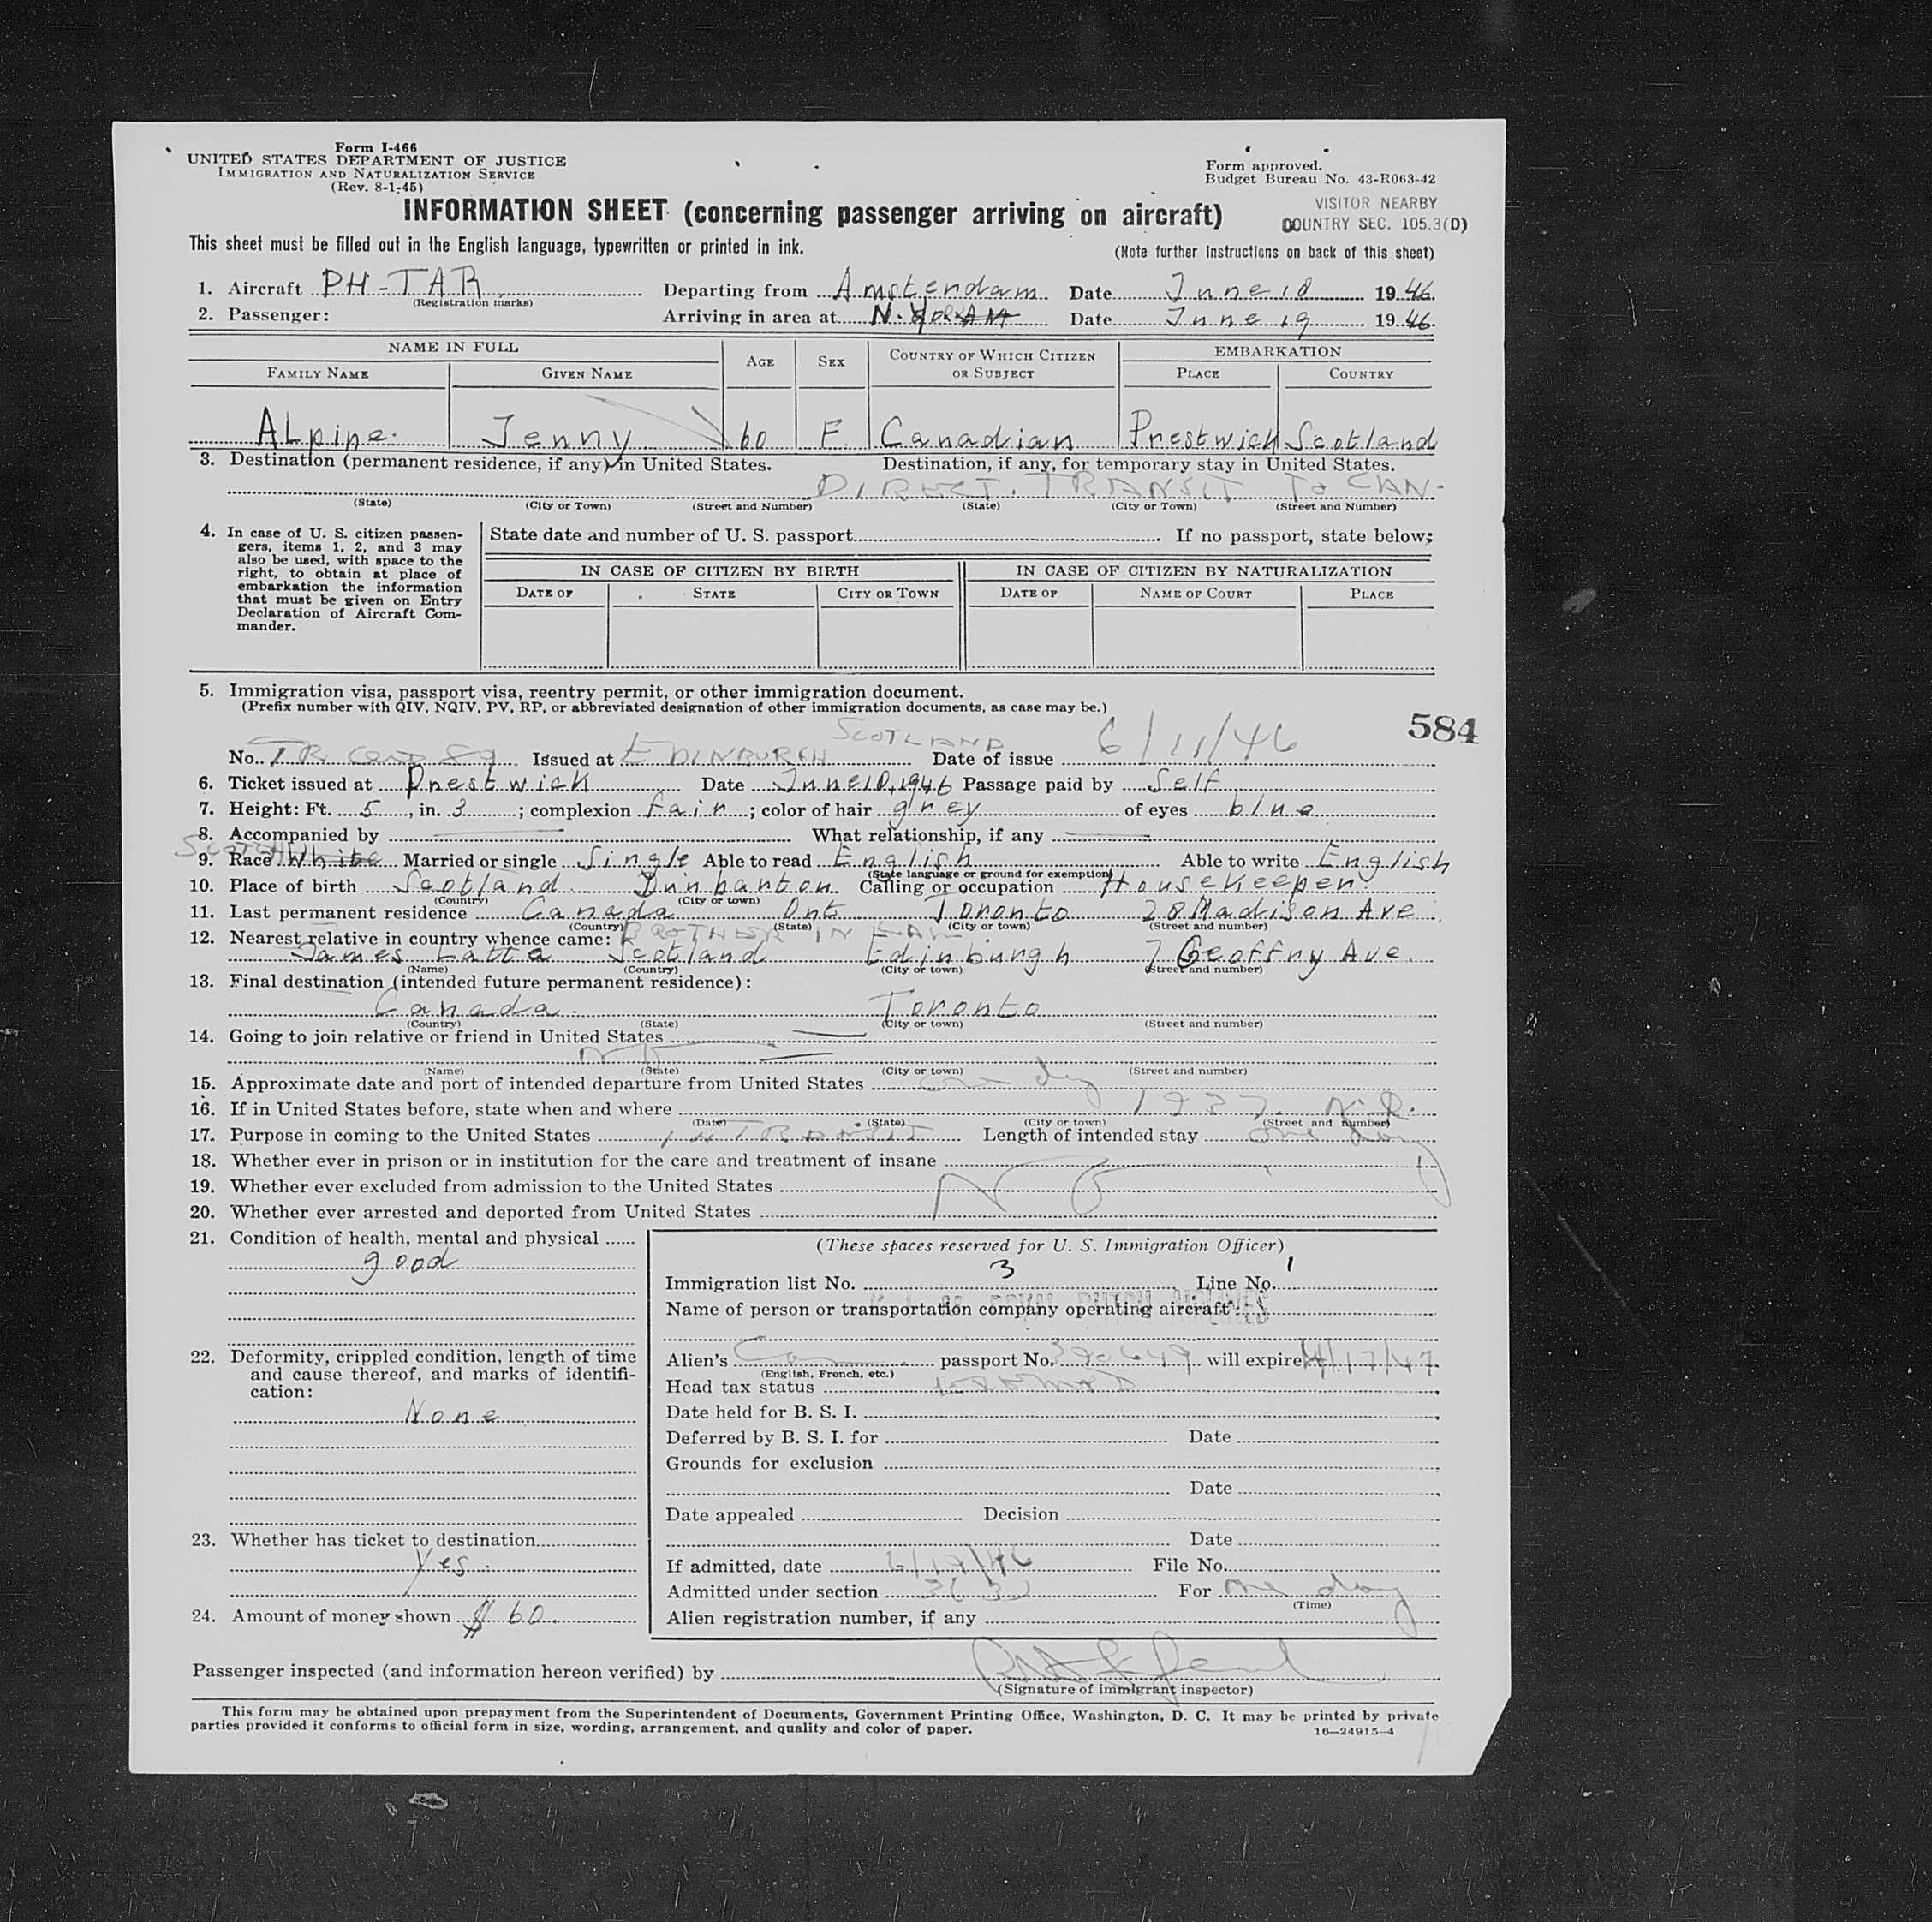 Form I-466
UNITED STATES DEPARTMENT OF JUSTICE
IMMIGRATION AND NATURALIZATION SERVICE
(Rev. 8-1-45)
Form approved.
Budget Bureau No. 43-R063-42
VISITOR NEARBY
COUNTRY SEC. 105.3(D)
INFORMATION SHEET (concerning passenger arriving on aircraft)
This sheet must be filled out in the English language, typewritten or printed in ink.
(Note further instructions on back of this sheet)
1. Aircraft PH-TAR Departing from Amsterdam Date June 18 1946
(Registration marks)
2. Passenger: Arriving in area at N. York Date June 19 1946
NAME IN FULL AGE SEX COUNTRY OF WHICH CITIZEN OR SUBJECT EMBARKATION
FAMILY NAME GIVEN NAME PLACE COUNTRY
ALpine. Jenny 60 F. Canadian Prestwick Scotland
3. Destination (permanent residence, if any) in United States. Destination, if any, for temporary stay in United States.
DIRECT. TRANSIT To CAN.
(State) (City or Town) (Street and Number) (State) (City or Town) (Street and Number)
4. In case of U. S. citizen passen-
gers, items 1, 2, and 3 may
also be used, with space to the
right, to obtain at place of
embarkation the information
that must be given on Entry
Declaration of Aircraft Com-
mander.
State date and number of U. S. passport If no passport, state below:
IN CASE OF CITIZEN BY BIRTH IN CASE OF CITIZEN BY NATURALIZATION
DATE OF STATE CITY OR TOWN DATE OF NAME OF COURT PLACE
5. Immigration visa, passport visa, reentry permit, or other immigration document.
(Prefix number with QIV, NQIV, PV, RP, or abbreviated designation of other immigration documents, as case may be.)
584
SCOTLAND
No. TR Cert 89 Issued at EDINBURGH Date of issue 6/11/46
6. Ticket issued at Prestwick Date June 10, 1946 Passage paid by Self
7. Height: Ft. 5, in. 3; complexion fair; color of hair grey of eyes blue
8. Accompanied by What relationship, if any
SCOTCH
9. Race White Married or single Single Able to read English Able to write English
(State language or ground for exemption)
10. Place of birth Scotland Dunbarton Calling or occupation Housekeeper.
(Country) (City or town)
11. Last permanent residence Canada Ont Toronto 28 Madison Ave
(Country) (State) (City or town) (Street and number)
12. Nearest relative in country whence came: BROTHER IN LAW
James Latta Scotland Edinburgh 7 Geoffry Ave.
(Name) (Country) (City or town) (Street and number)
13. Final destination (intended future permanent residence):
Canada. Toronto
(Country) (State) (City or town) (Street and number)
14. Going to join relative or friend in United States
No
(Name) (State) (City or town) (Street and number)
15. Approximate date and port of intended departure from United States one day
16. If in United States before, state when and where 1937.
(Date) (State) (City or town) (Street and number)
17. Purpose in coming to the United States IN TRANSIT Length of intended stay one day
18. Whether ever in prison or in institution for the care and treatment of insane
19. Whether ever excluded from admission to the United States No
20. Whether ever arrested and deported from United States
21. Condition of health, mental and physical
good
22. Deformity, crippled condition, length of time
and cause thereof, and marks of identifi-
cation:
None
23. Whether has ticket to destination
Yes.
24. Amount of money shown $ 60.
(These spaces reserved for U. S. Immigration Officer)
Immigration list No. 3 Line No. 1
Name of person or transportation company operating aircraft
ROYAL DUTCH AIRLINES
Alien's Can passport No. 390649 will expire 4/17/47
(English, French, etc.)
Head tax status
Date held for B. S. I.
Deferred by B. S. I. for Date
Grounds for exclusion
Date
Date appealed Decision
Date
If admitted, date 6/19/46 File No.
Admitted under section 3(3) For one day
(Time)
Alien registration number, if any
Passenger inspected (and information hereon verified) by
(Signature of immigrant inspector)
This form may be obtained upon prepayment from the Superintendent of Documents, Government Printing Office, Washington, D. C. It may be printed by private
parties provided it conforms to official form in size, wording, arrangement, and quality and color of paper. 16—24915-4